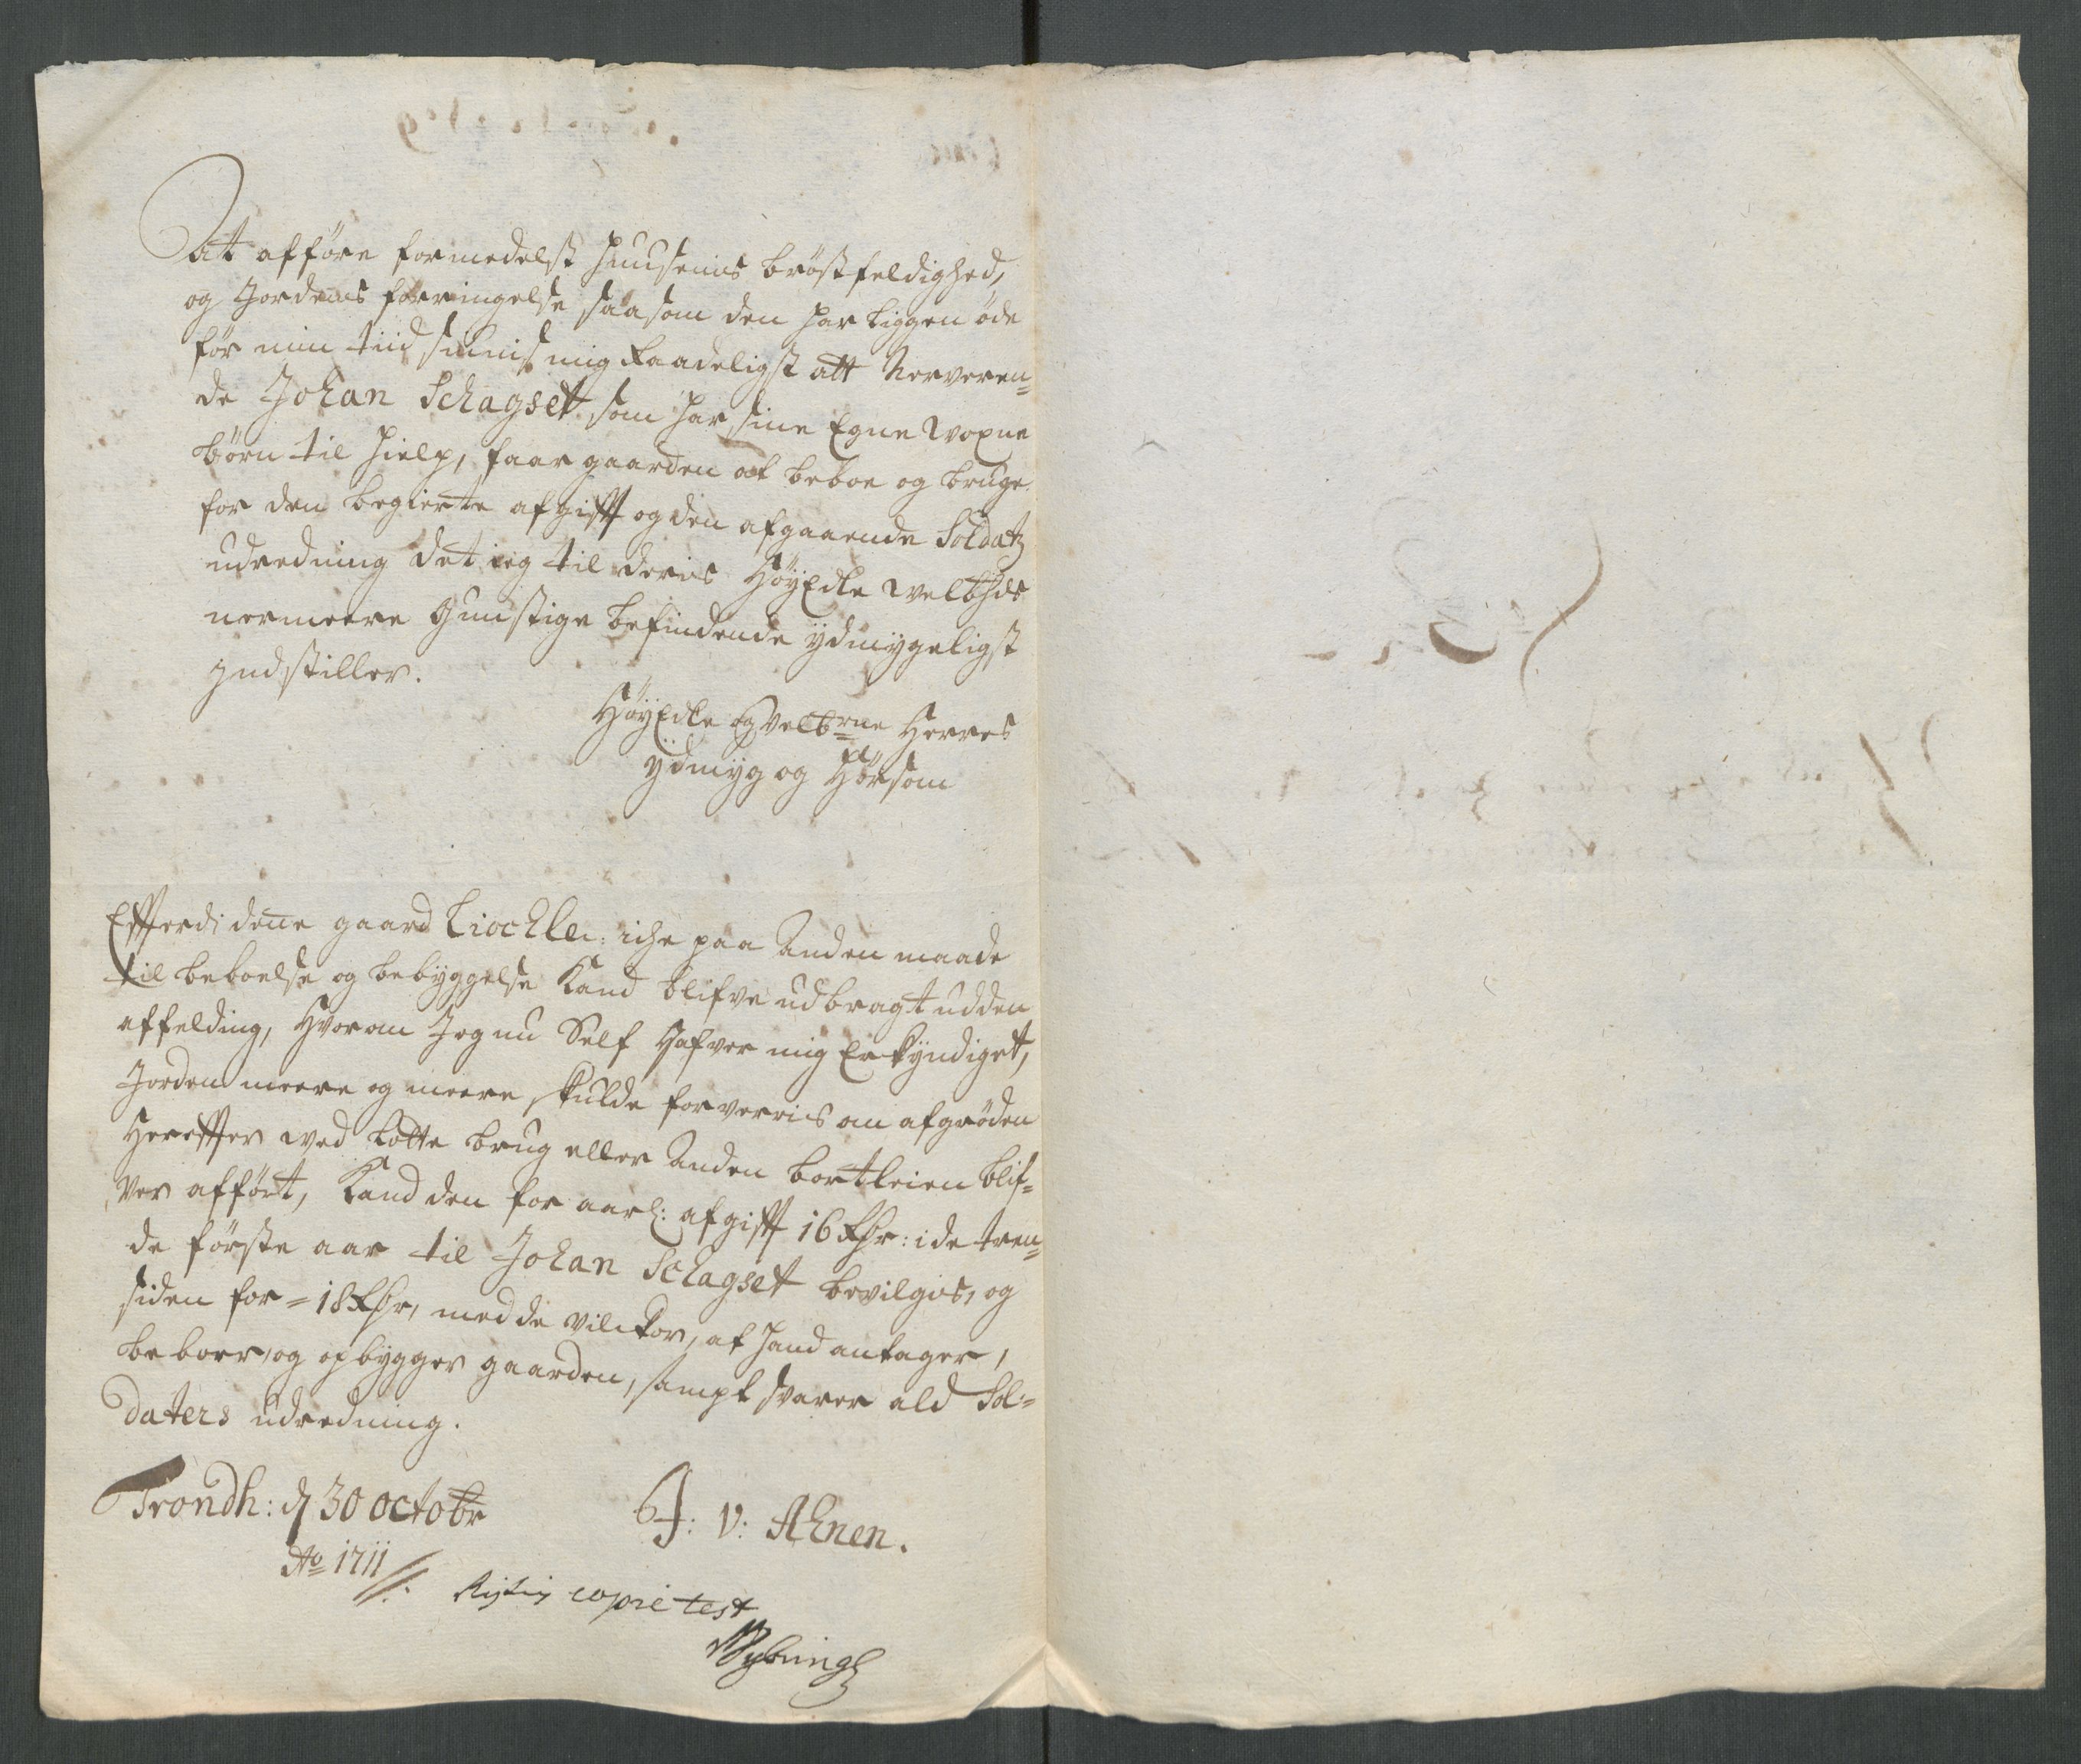 at afføre formedelst Huusenis brøstfeldighed,
og Jordens forringelse saasom den har liggen øde
før min tiid siunis mig Raadeligst att Nerveren=
de Johan Schagset som har sine Egne Voxne
børn til hielp, faar gaarden at beboe og bruge
for den begierte afgifft og den afgaaende Soldatz
udredning det ieg til deris HøyEdle Velbhds
nermeere gunstige befindende ydmygeligst
indstiller.
HøyEdle og Velbrne Herres
ydmyg og Hørsom
Effterdi denne gaard Liochle: iche paa Anden maade
til beboelse og bebyggelse Kand blifve udbragt udden
affelding, Hvorom Jeg nu Self Hafver mig Erkyndiget,
Jorden meere og meere skulde forverris om afgrøden
Hereffter ved Lotte brug eller Anden bortleien blif=
ver afført, Kand den for aarl: afgifft 16 Rdr: i de tren=
de første aar til Johan Schagset bevilgis, og
siden for = 18 Rdr, med de vilckor, at hand antager,
beboer, og opbygger gaarden, sampt svarer ald Sol=
daters udredning.
Trondh: d 30 octobr
Ao 1711
J: V: Ahnen.
Rigtig copie test